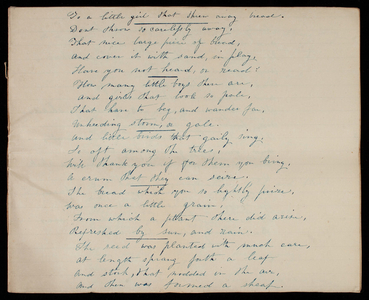 To a little girl that threw away bread.
Dont throw so carelessly away,
That nice large piece of bread,
and cover it with sand, in play,
Have you not heard, or read?
How, many little boys there are,
and girls that look so pale,
That have to beg, and wander far,
Unheeding storm, or gale.
and little birds that gaily sing,
So oft among the trees,
Will thank you if for them you bring,
A crum that they can seize.
The bread which you so lightly prize,
Was once a little grain,
From which a plant there did arise,
Refreshed by sun, and rain.
The seed was planted with much care,
at length sprang forth a leaf
and stock, that nodded in the air,
and then was formed a sheaf.